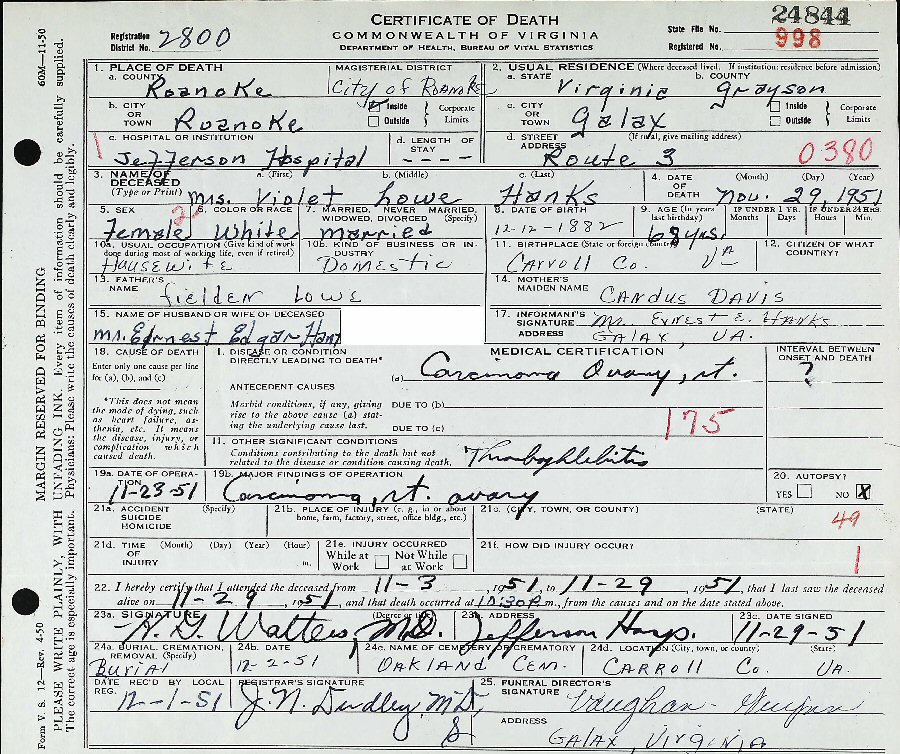 CERTIFICATE OF DEATH
COMMONWEALTH OF VIRGINIA
DEPARTMENT OF HEALTH, BUREAU OF VITAL STATISTICS
Registration District No. 2800
State File No. 24844
Registered No. 998
1. PLACE OF DEATH
a. COUNTY Roanoke
MAGISTERIAL DISTRICT City of Roanoke
b. CITY OR TOWN Roanoke
☑ Inside ☐ Outside } Corporate Limits
c. HOSPITAL OR INSTITUTION Jefferson Hospital
d. LENGTH OF STAY ----
2. USUAL RESIDENCE (Where deceased lived. If institution: residence before admission)
a. STATE Virginia
b. COUNTY Grayson
c. CITY OR TOWN Galax
☐ Inside ☐ Outside } Corporate Limits
d. STREET ADDRESS (If rural, give mailing address) Route 3
0380
3. NAME OF DECEASED (Type or Print)
a. (First) Mrs. Violet b. (Middle) Lowe c. (Last) Hanks
4. DATE OF DEATH (Month) (Day) (Year) Nov. 29, 1951
5. SEX female
2
6. COLOR OR RACE White
7. MARRIED, NEVER MARRIED, WIDOWED, DIVORCED (Specify) married
8. DATE OF BIRTH 12-12-1882
9. AGE (In years last birthday) 68 yrs.
IF UNDER 1 YR. Months Days
IF UNDER 24 HRS. Hours Min.
10a. USUAL OCCUPATION (Give kind of work done during most of working life, even if retired) Housewife
10b. KIND OF BUSINESS OR INDUSTRY Domestic
11. BIRTHPLACE (State or foreign country) Carroll Co. VA
12. CITIZEN OF WHAT COUNTRY?
13. FATHER'S NAME Fielden Lowe
14. MOTHER'S MAIDEN NAME Candus Davis
15. NAME OF HUSBAND OR WIFE OF DECEASED
Mr. Ernest Edgar Han
17. INFORMANT'S SIGNATURE Mr. Ernest E. Hanks
ADDRESS Galax, VA.
18. CAUSE OF DEATH
Enter only one cause per line for (a), (b), and (c)
*This does not mean the mode of dying, such as heart failure, asthenia, etc. It means the disease, injury, or complication which caused death.
MEDICAL CERTIFICATION
INTERVAL BETWEEN ONSET AND DEATH
I. DISEASE OR CONDITION DIRECTLY LEADING TO DEATH*
(a) Carcinoma Ovary, rt. ?
ANTECEDENT CAUSES
Morbid conditions, if any, giving rise to the above cause (a) stating the underlying cause last.
DUE TO (b)
DUE TO (c)
175
11. OTHER SIGNIFICANT CONDITIONS
Conditions contributing to the death but not related to the disease or condition causing death.
Thrombophlebitis
19a. DATE OF OPERATION 11-23-51
19b. MAJOR FINDINGS OF OPERATION Carcinoma, rt. ovary
20. AUTOPSY? YES ☐ NO ☒
21a. ACCIDENT SUICIDE HOMICIDE (Specify)
21b. PLACE OF INJURY (e. g., in or about home, farm, factory, street, office bldg., etc.)
21c. (CITY, TOWN, OR COUNTY) (STATE)
49
21d. TIME OF INJURY (Month) (Day) (Year) (Hour) m.
21e. INJURY OCCURRED While at Work ☐ Not While at Work ☐
21f. HOW DID INJURY OCCUR?
1
22. I hereby certify that I attended the deceased from 11-3, 1951, to 11-29, 1951, that I last saw the deceased
alive on 11-29, 1951, and that death occurred at 10:30P m., from the causes and on the date stated above.
23a. SIGNATURE (Degree or title) Walters M.D.
23b. ADDRESS Jefferson Hosp.
23c. DATE SIGNED 11-29-51
24a. BURIAL, CREMATION, REMOVAL (Specify) Burial
24b. DATE 12-2-51
24c. NAME OF CEMETERY OR CREMATORY Oakland Cem.
24d. LOCATION (City, town, or county) (State) Carroll Co. VA
DATE REC'D BY LOCAL REG. 12-1-51
REGISTRAR'S SIGNATURE J. N. Dudley, M.D.
25. FUNERAL DIRECTOR'S SIGNATURE Vaughan-Guynn
ADDRESS Galax, Virginia
Form V. S. 12—Rev. 4-50 60M—11-50
PLEASE WRITE PLAINLY, WITH UNFADING INK. Every item of information should be carefully supplied.
The correct age is especially important. Physicians: Please write the causes of death clearly and legibly.
MARGIN RESERVED FOR BINDING